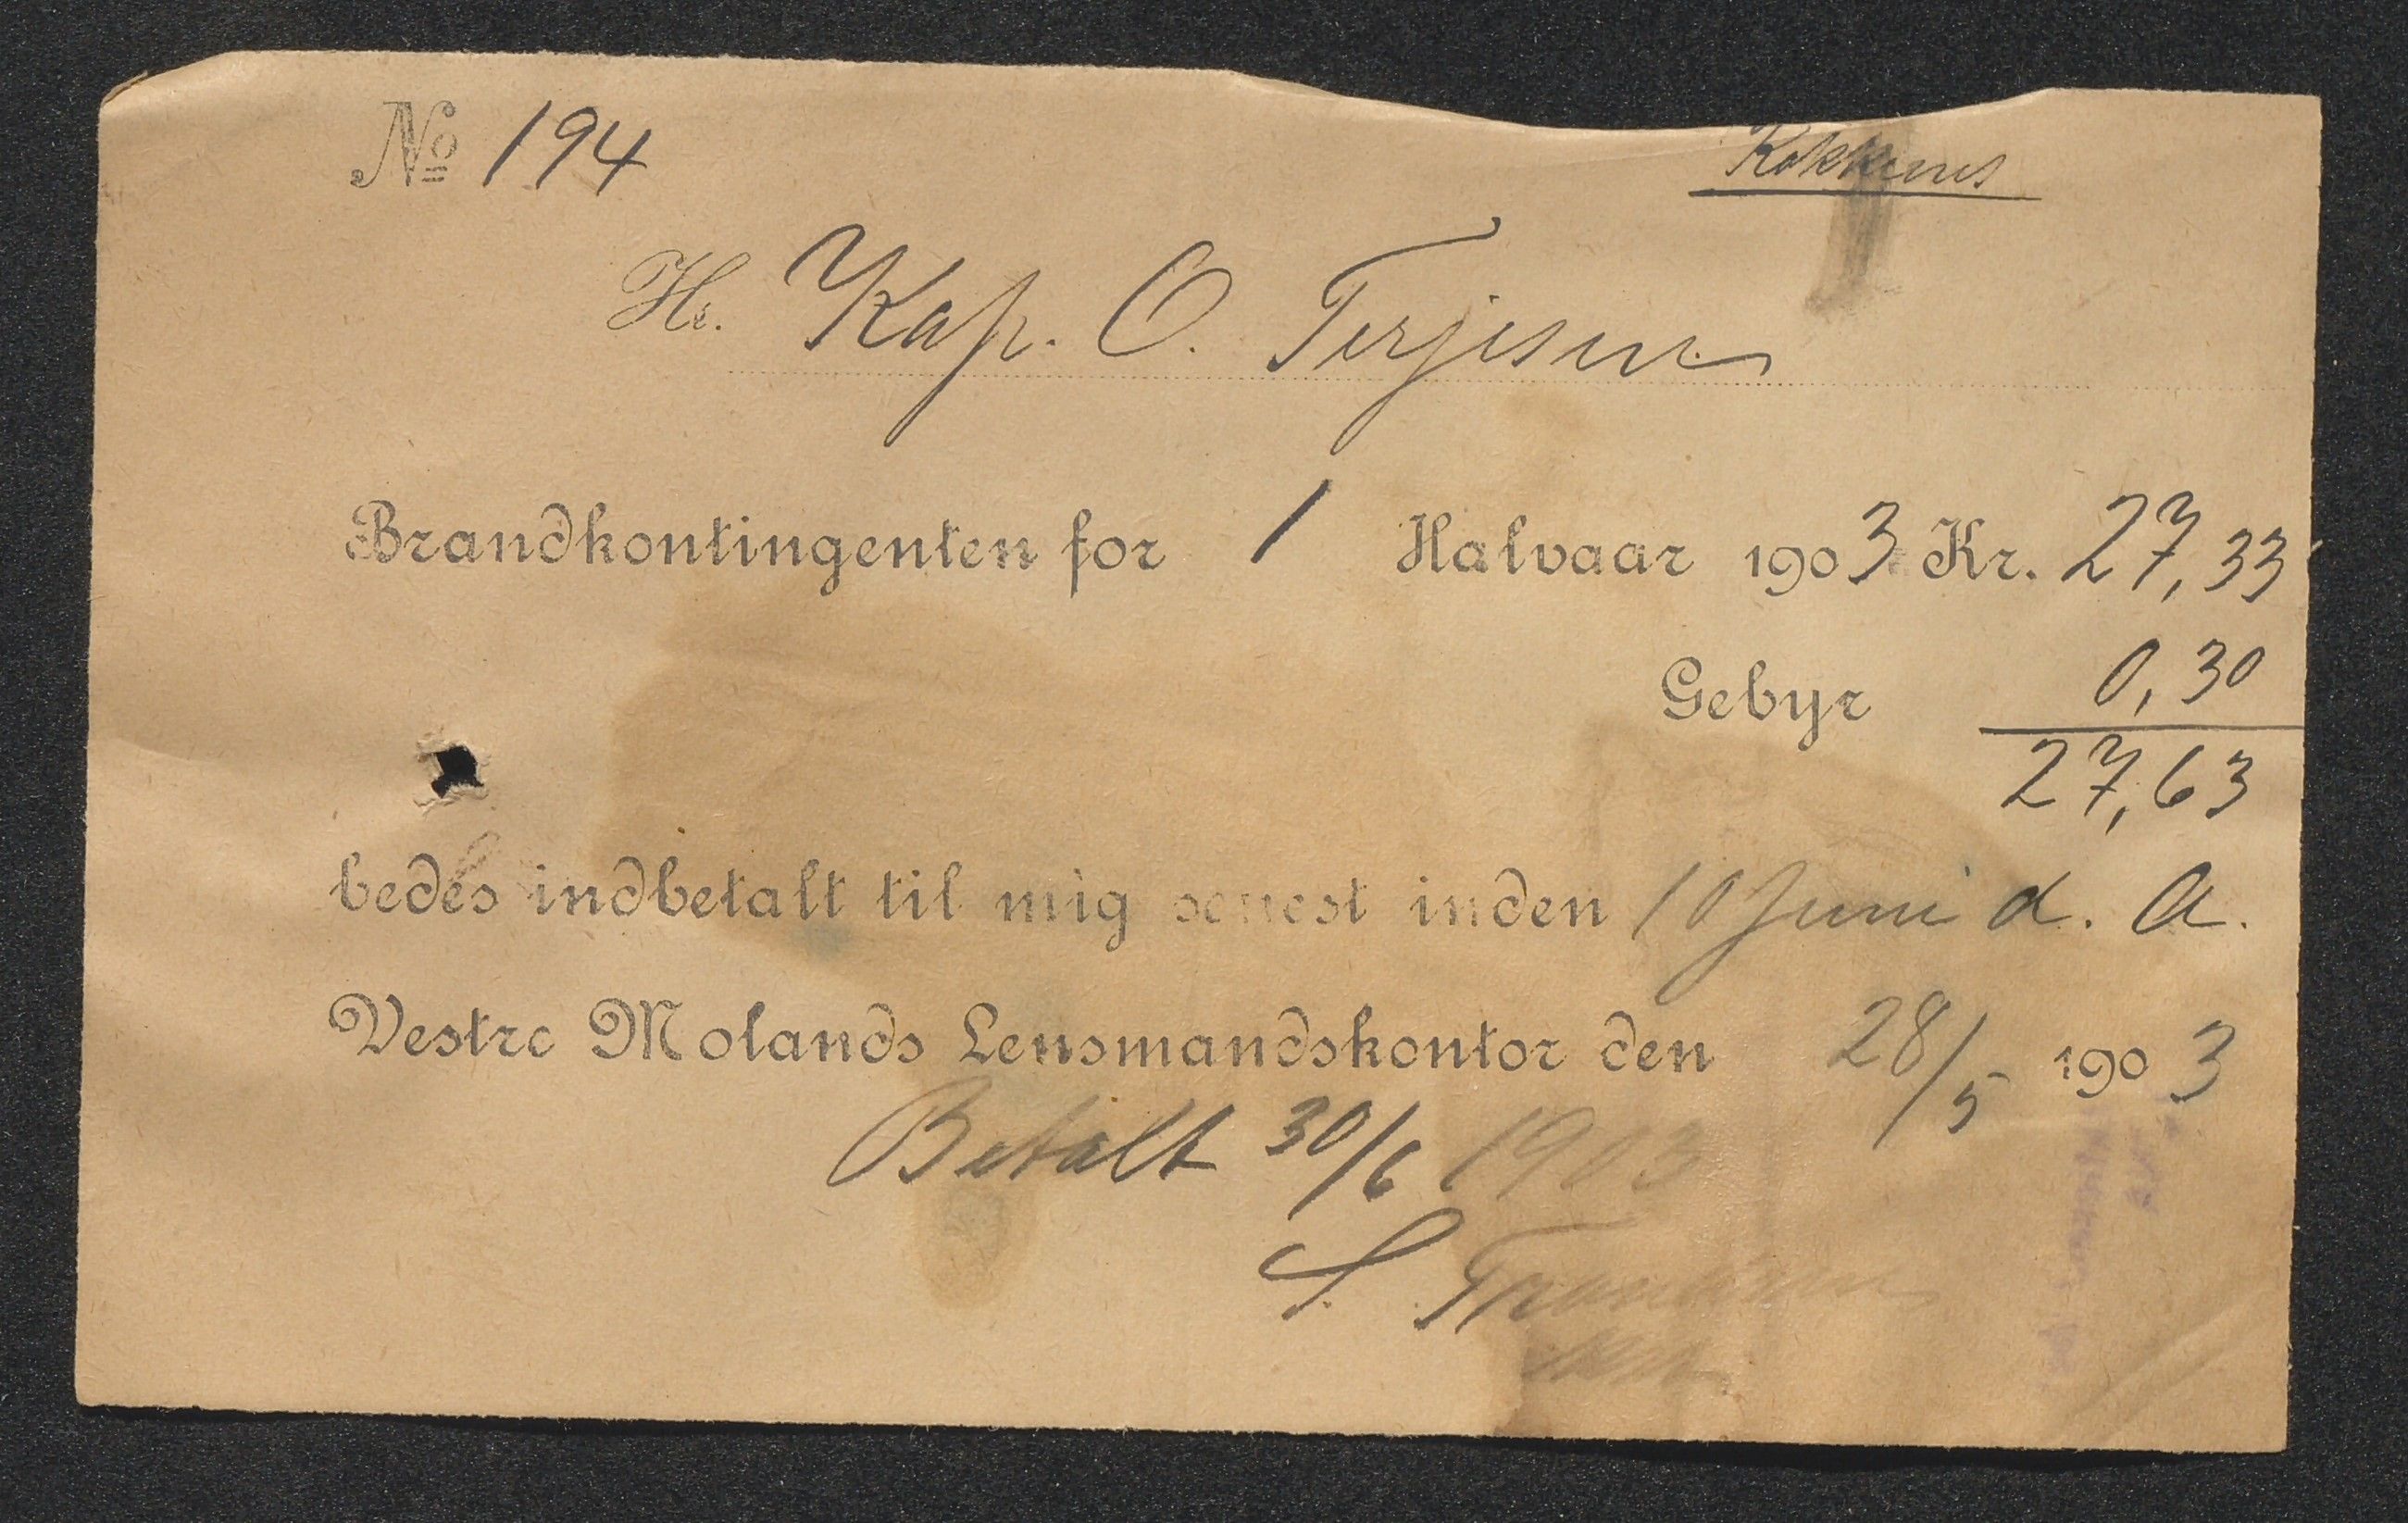 No 194
Kokkenes
Hr. Kap. O. Terjesen
Brandkontingenten for 1 Halvaar 1903 Kr. 27,33
Gebyr 0,30
27,63
bedes indbetalt til mig senest inden 10 Juni d. A.
Vestre Molands Lensmandskontor den 28/5 1903
Betalt 30/6 1903